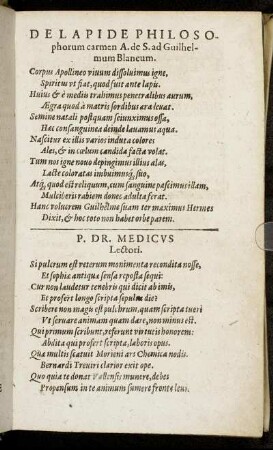 DE LAPIDE PHILOSO-
phorum carmen A. de S. ad Guilhel-
mum Blaneum.
Corpus Apollineo viuum dissoluimus igne,
Spiritus vt fiat, quod fuit ante lapis.
Huius & è mediis trahimus penetralibus aurum,
Ægra quod à matris sordibus æra leuat.
Semine natali postquam seiunximus ossa,
Hæc consanguinea deinde lauamus aqua.
Nascitur ex illis varios induta colores
Ales, & in cælum candida facta volat.
Tum nos igne nouo depingimus illius alas,
Lacte coloratas imbuimusq́; suo,
Atq́; quod est reliquum, cum sanguine pascimus illam,
Mulciberis rabiem donec adulta ferat.
Hanc volucrem Guilhelme suam ter maximus Hermes
Dixit, & hoc toto non habet orbe parem.
P. DR. MEDICVS
Lectori.
Si pulcrum est veterum monimenta recondita nosse,
Et sophiæ antiquæ sensa reposta sequi:
Cur non laudetur tenebris qui dicit ab imis,
Et profert longo scripta sepulta die?
Scribere non magis est pulchrum, quam scripta tueri
Vt seruare animam quam dare, non minus est.
Qui primum scribunt, referunt virtutis honorem:
Abdita qui profert scripta, laboris opus.
Quæ multis scatuit Morieni ars Chemica nodis.
Bernardi Treuiri clarior exit ope.
Quo quia te donat munere, debes
Propensum in te animum sumere fronte leui.